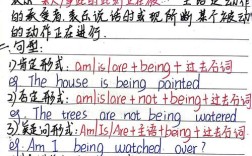 的承受者,表示说话的当现所断某个被动
的动作正在进行.
二.句型:
1)肯定形式: am|is|are+being+过去分词
eg. The house is being painted
2)否定形式: am|is|are+not+being+过去分词
eg. The trees are not being watered
3)疑问形式: Am|Is|Are+主语+being+过去分词
eg. Am I being watched over?